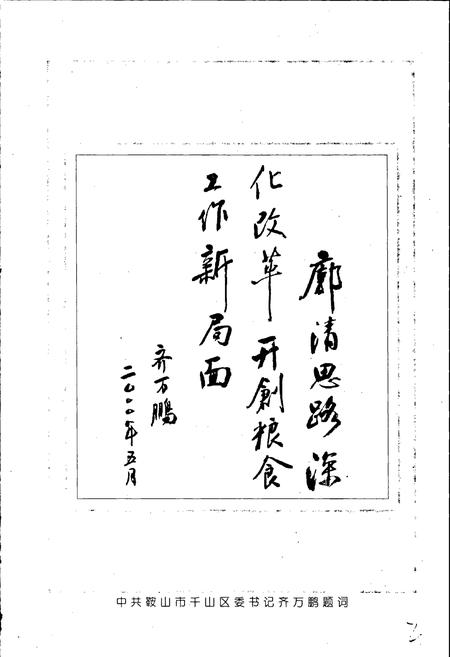 廓清思路深
化改革开創粮食
工作新局面
齐万鹏
二〇〇〇年五月
中共鞍山市千山区委书记齐万鹏题词